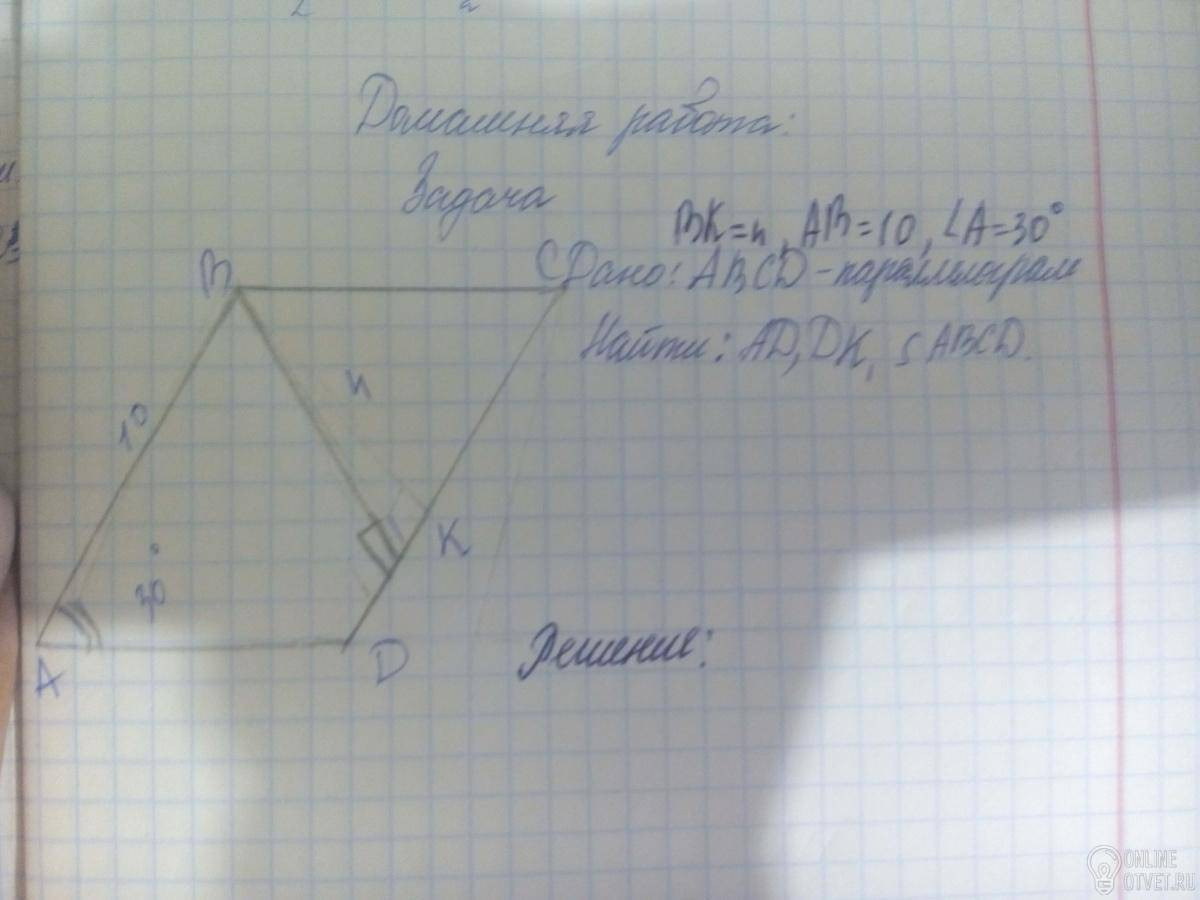 Домашняя работа:
Задача
BK=4, AB=10, ∠A=30°
Дано: ABCD - параллелограмм
Найти: AD, DK, S ABCD.
B
C
10
4
K
30°
A
D
Решение:
ONLINE
OTVET.RU